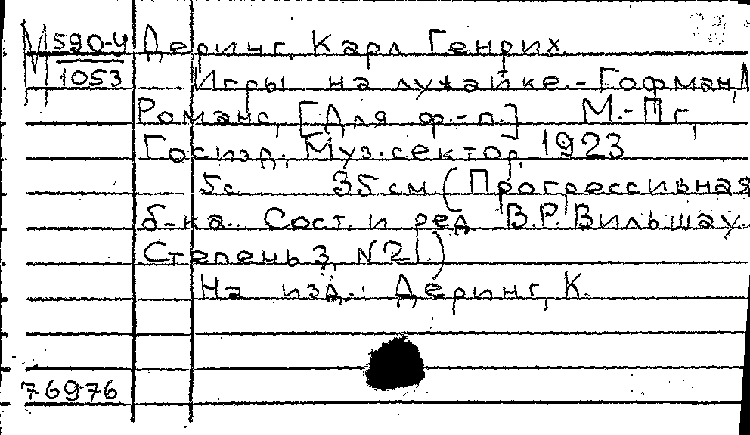 М 590-У Деринг, Карл Генрих.
1053 Игры на лужайке.- Гофман,
Романс, [Для ф.-п.] М.-Пг,
Госизд. Муз.сектор, 1923
5с. 35 см (Прогрессивная
б-ка. Сост. и ред В.Р.Вильшау.
Степень 3, №21.)
На изд.: Деринг, К.
76976